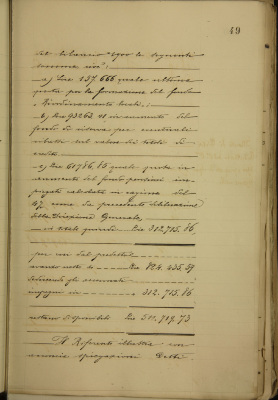 49
del bilancio 1900 le seguenti
somme cioè:
a) Lire 157.666 quale ultima
quota per la formazione del fondo
"
b) Lire 93263.01 in aumento del
fondo di riserva per eventuali
ribassi sul valore dei titoli di
c) Lire 61786,85 quale quota in
aumento del fondo pensioni im-
piegati calcolata in ragione del
4% come da precedente deliberazione
della Direzione Generale,
ed in totale quindi Lire 312,715.86,
per cui dal predetto
avanzo netto di Lire 824.435.59
deducendo gli aumenti
suddetti in 312.715.86
restano disponibili Lire 511,719.73
Il Riferente illustra con
numerose spiegazioni Detta